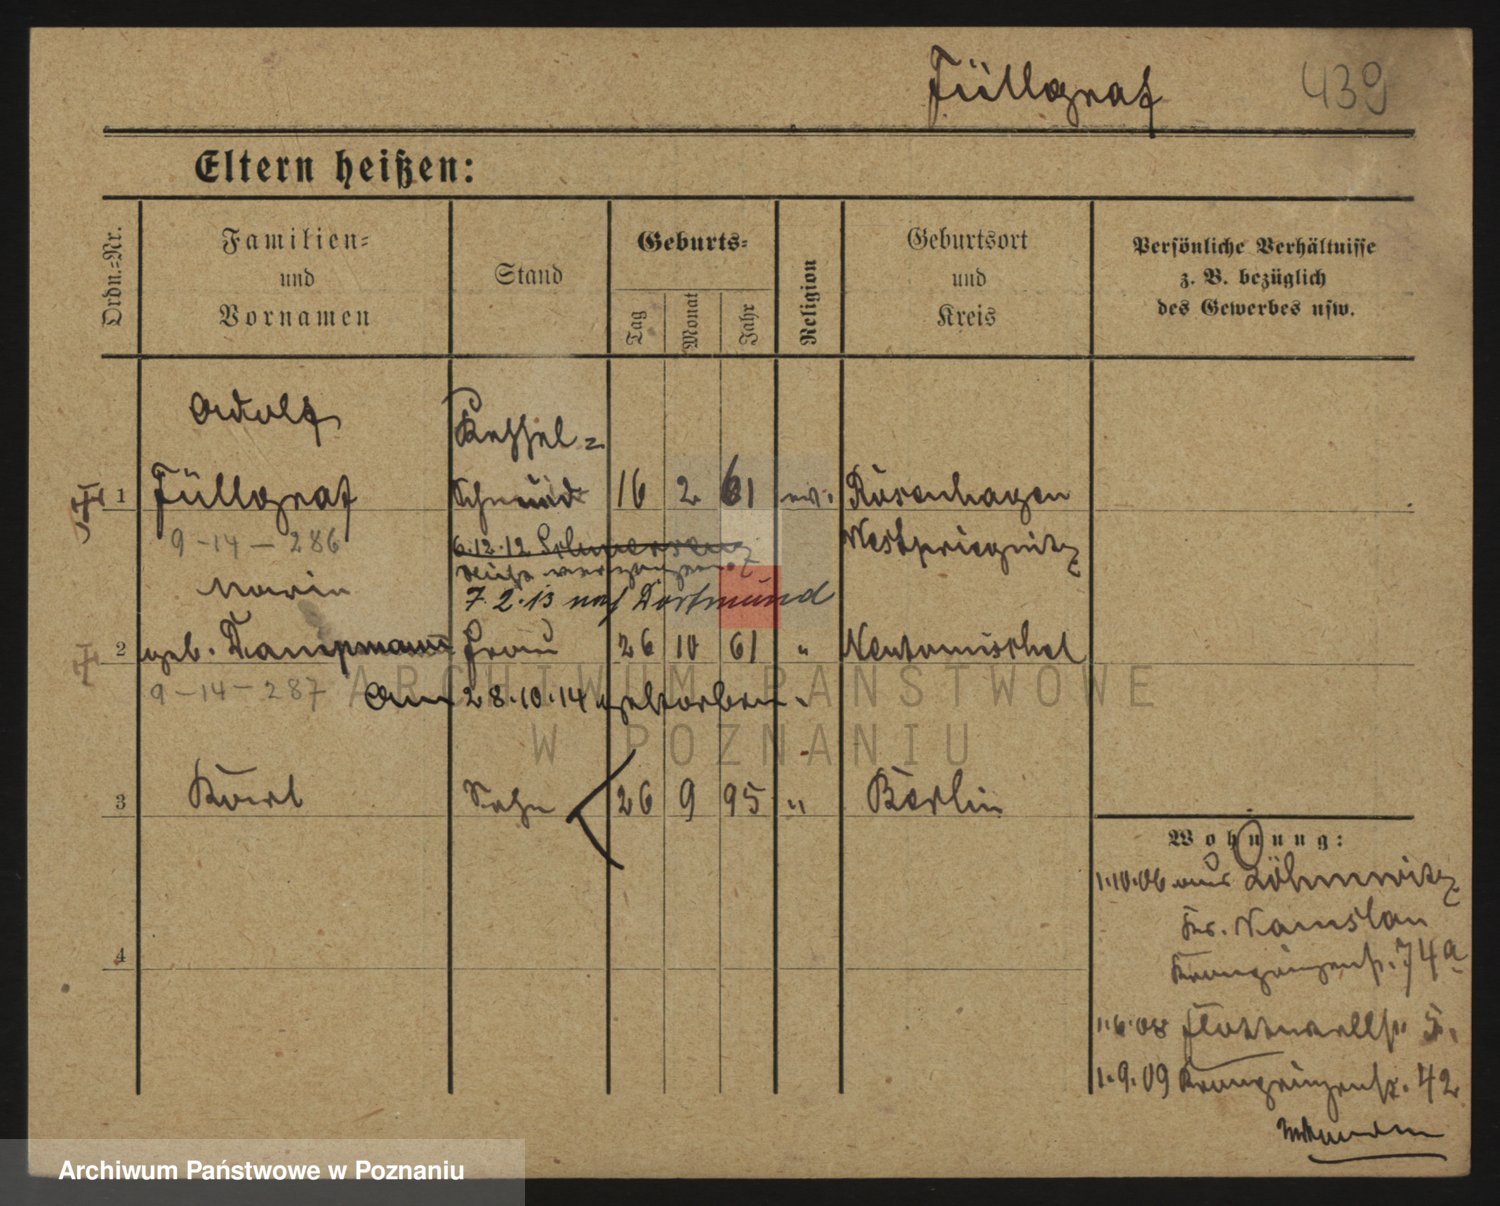 Füllgraf 439
Eltern heißen:
Ordn.-Nr.
Familien-
und
Vornamen
Stand
Geburts-
Tag
Monat
Jahr
Religion
Geburtsort
und
Kreis
Persönliche Verhältnisse
z. B. bezüglich
des Gewerbes usw.
Adolf Kessel-
1 Füllgraf Schmied 16 2 61 ev. Rosenhagen
9-14-286 6.12.12 Westpriegnitz
7.2.13 nach Dortmund
Maria
2 geb. Kampmann Frau 26 10 61 " Neutomischel
9-14-287 Am 28.10.14 gestorben.
3 Karl Sohn 26 9 95 " Berlin
4
Wohnung:
1.10.06 aus
Kr. Namslau
Kronprinzenstr. 74a
1.6.08 Flottwellstr 5.
1.9.09 Kronprinzenstr. 42
ARCHIWUM PAŃSTWOWE
W POZNANIU
Archiwum Państwowe w Poznaniu